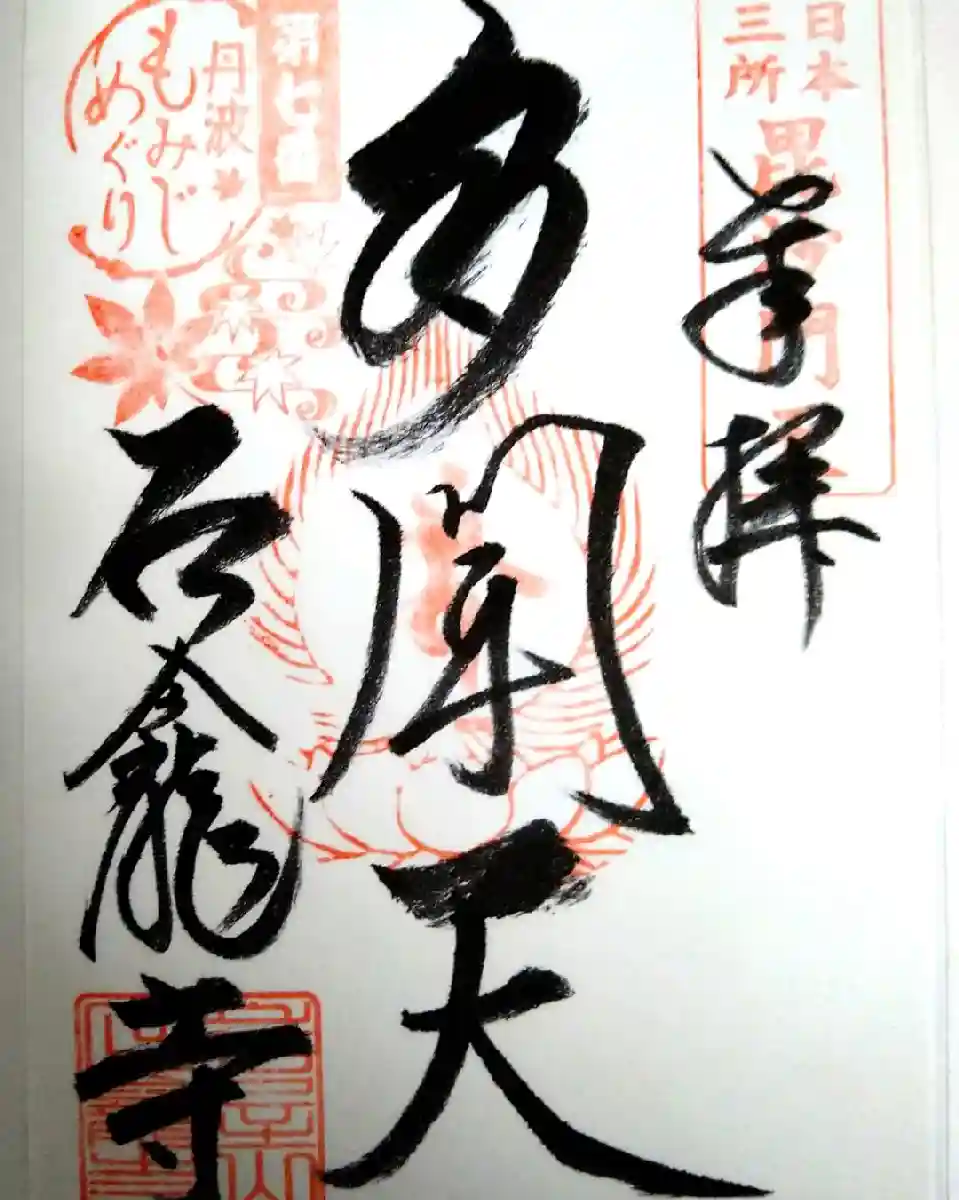 日本
三所
毘沙門天
奉拝
多聞天
第七番
丹波
もみじ
めぐり
石龕寺